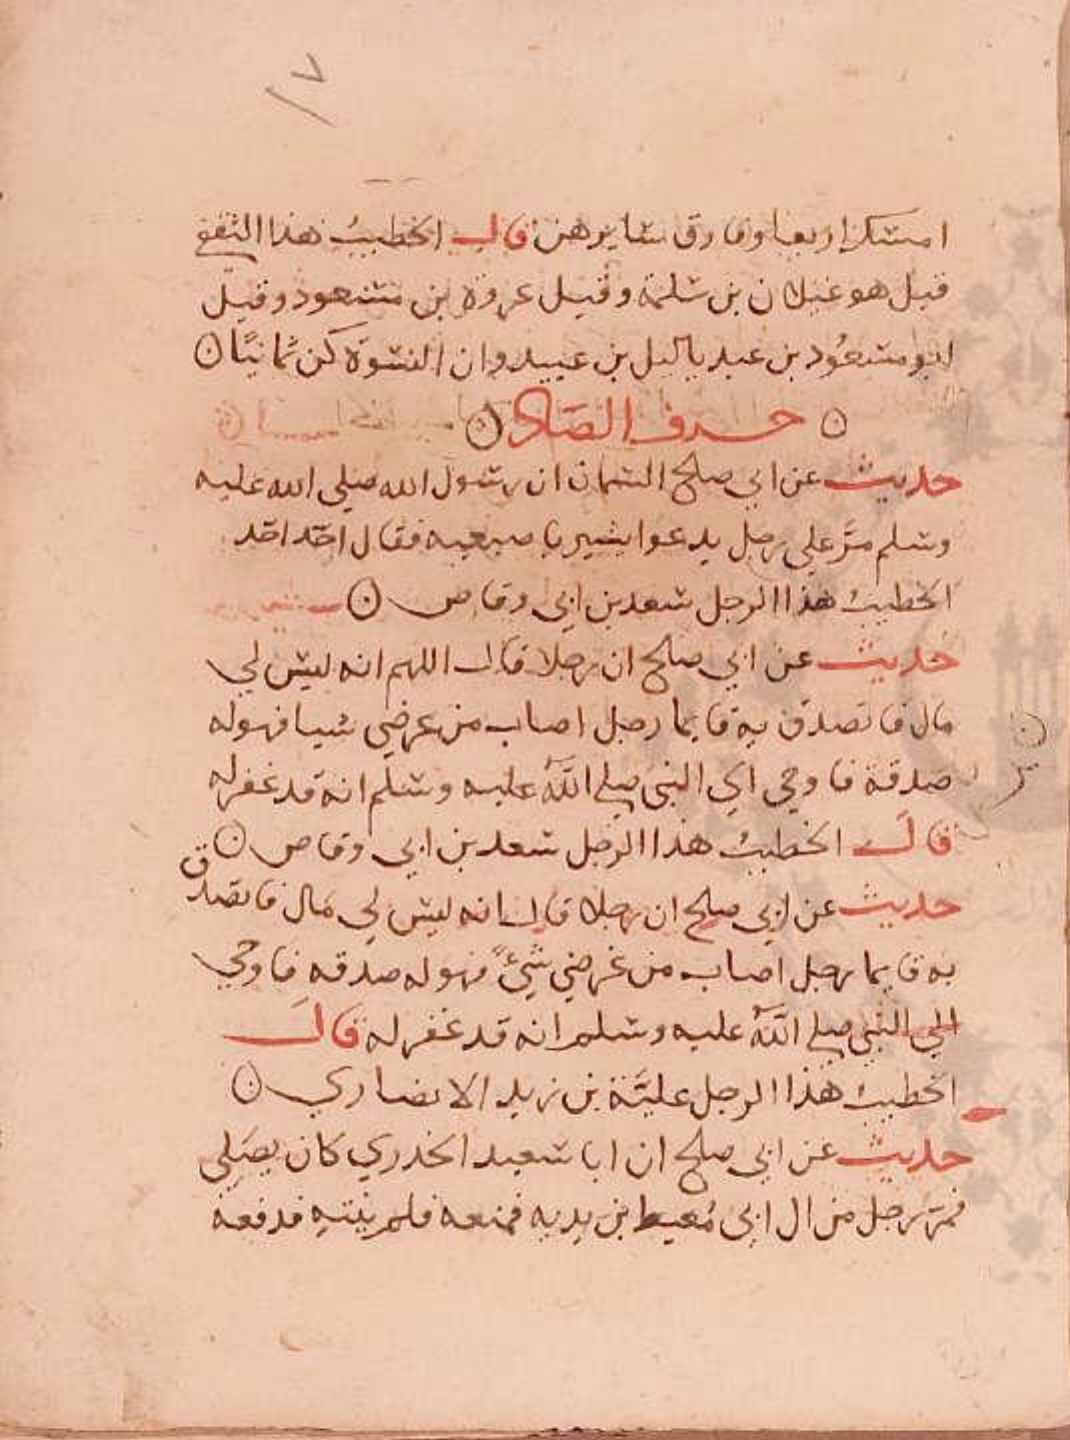 ١٧
امسك اربعا وفارق سايرهن قال الخطيب هذا الثقفي
قيل هو غيلان بن سلمة وقيل عروة بن مسعود وقيل
ابو مسعود بن عبد ياليل بن عبيد وان النسوة كن ثمانيا
حرف الصاد
حديث عن ابي صالح السمان ان رسول الله صلى الله عليه
وسلم مر علي رجل يدعوا يشير باصبعيه فقال احد احد
الخطيب هذا الرجل سعد بن ابي وقاص
حديث عن ابي صالح ان رجلا قال اللهم انه ليس لي
مال فاتصدق به فايما رجل اصاب من عرضي شيا فهو له
صدقة فاوحي الي النبي صلى الله عليه وسلم انه قد غفر له
قال الخطيب هذا الرجل سعد بن ابي وقاص
حديث عن ابي صالح ان رجلا قال انه ليس لي مال فاتصدق
به فايما رجل اصاب من عرضي شيء فهو له صدقه فاوحي
الي النبي صلى الله عليه وسلم انه قد غفر له قال
الخطيب هذا الرجل علية بن زيد الانصاري
حديث عن ابي صالح ان ابا سعيد الخدري كان يصلي
فمر رجل من ال ابي معيط بن يديه فمنعه فلم ينته فدفعه